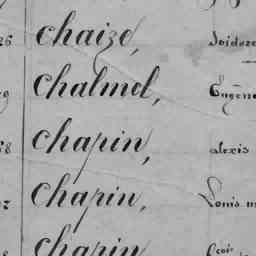 chaize,
chalmel, Eugène
chapin, alexis
chapin, Louis
chapin